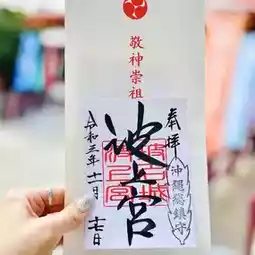 敬神崇祖
奉拝
沖縄総鎮守
波上宮
令和三年十一月
十七日